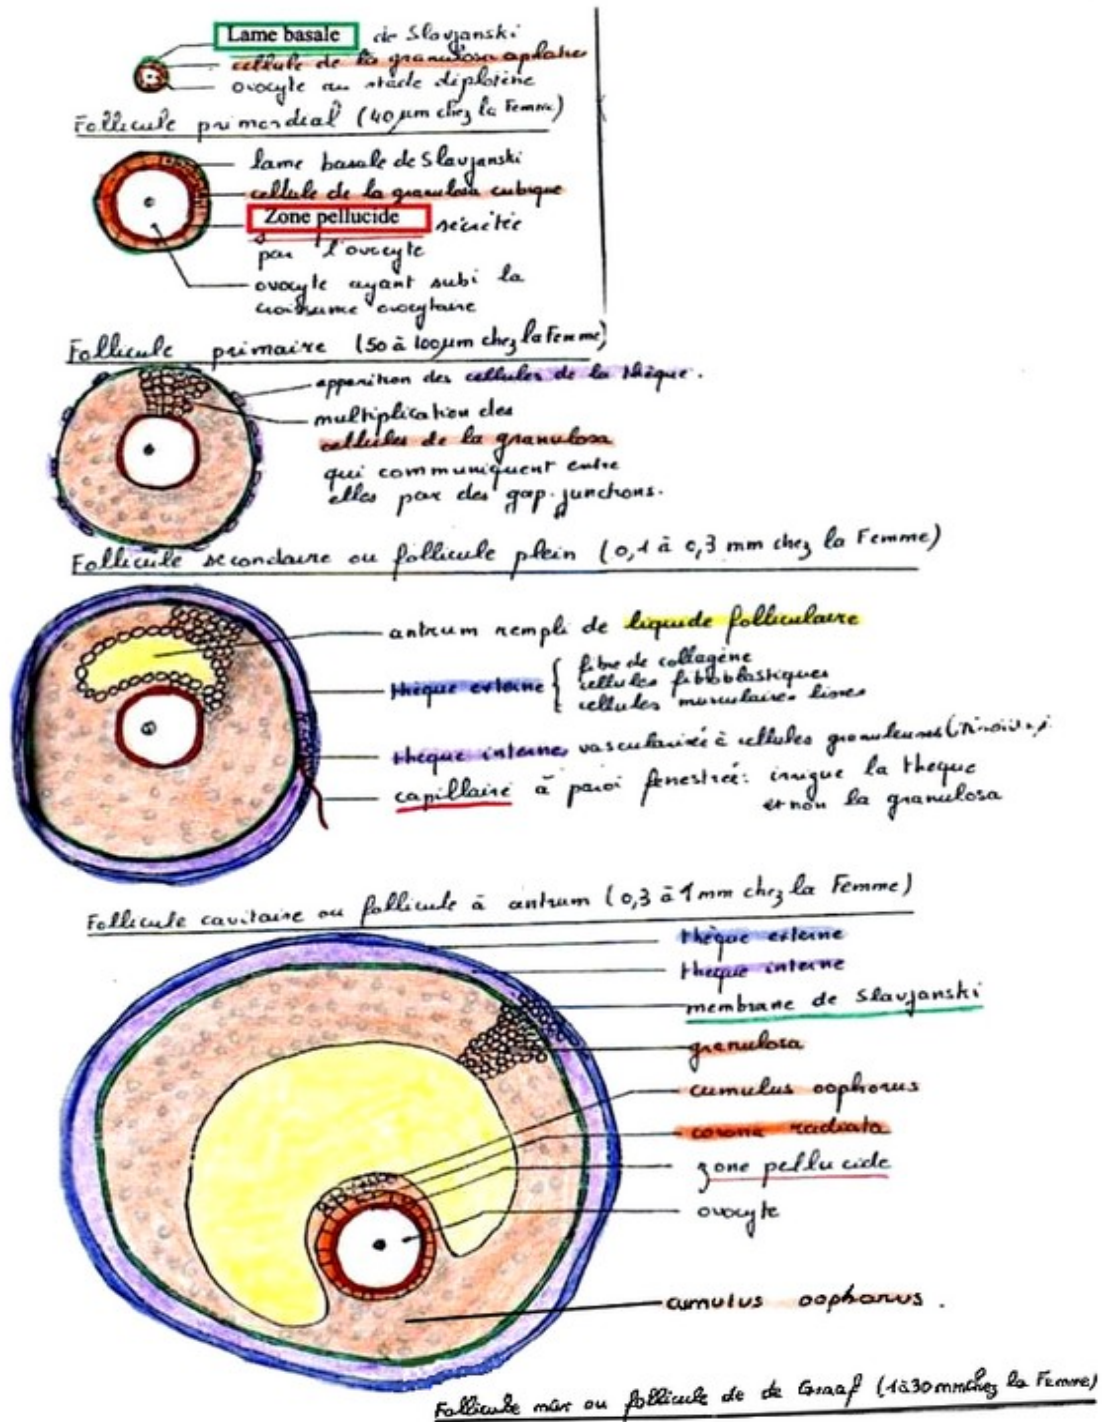 Lame basale de Slavjanski
cellule de la granulosa aplatie
ovocyte au stade diplotène
Follicule primordial (40 µm chez la Femme)
lame basale de Slavjanski
cellule de la granulosa cubique
Zone pellucide sécrétée
par l'ovocyte
ovocyte ayant subi la
croissance ovocytaire
Follicule primaire (50 à 100µm chez la Femme)
apparition des cellules de la thèque.
multiplication des
cellules de la granulosa
qui communiquent entre
elles par des gap-junctions.
Follicule secondaire ou follicule plein (0,1 à 0,3 mm chez la Femme)
antrum rempli de liquide folliculaire
thèque externe { fibre de collagène
cellules fibroblastiques
cellules musculaires lisses
thèque interne vascularisée à cellules granuleuses
capillaire à paroi fenestrée: irrigue la theque
et non la granulosa
Follicule cavitaire ou follicule à antrum (0,3 à 1 mm chez la Femme)
thèque externe
theque interne
membrane de Slavjanski
granulosa
cumulus oophorus
corona radiata
zone pellucide
ovocyte
cumulus oophorus.
Follicule mûr ou follicule de de Graaf (1 à 30 mm chez la Femme)